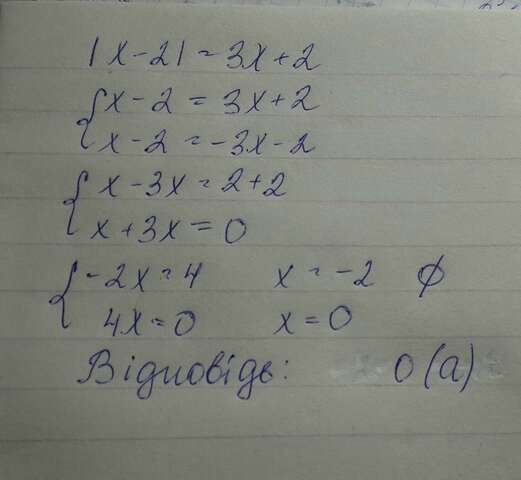 |x-2| = 3x+2
{x-2 = 3x+2
x-2 = -3x-2
{x-3x=2+2
x+3x=0
{-2x=4 x=-2 ∅
4x=0 x=0
Відповідь: 0(а)